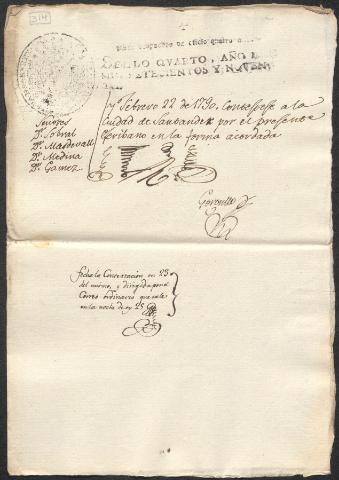 314
SELLO QVARTO, AÑO D
MIL SETECIENTOS Y NOVEN
Señores
Dn. Sobral
Dn. Masdevall
Dn. Medina
Dn. Gamez
y Febrero 22 de 1790. Contestese a la
Ciudad de Santander por el presente
Escribano en la forma acordada
fecha la Contestacion en 23
del mismo, y dirigida por el
Correo ordinario que sale
en la noche de oy 23